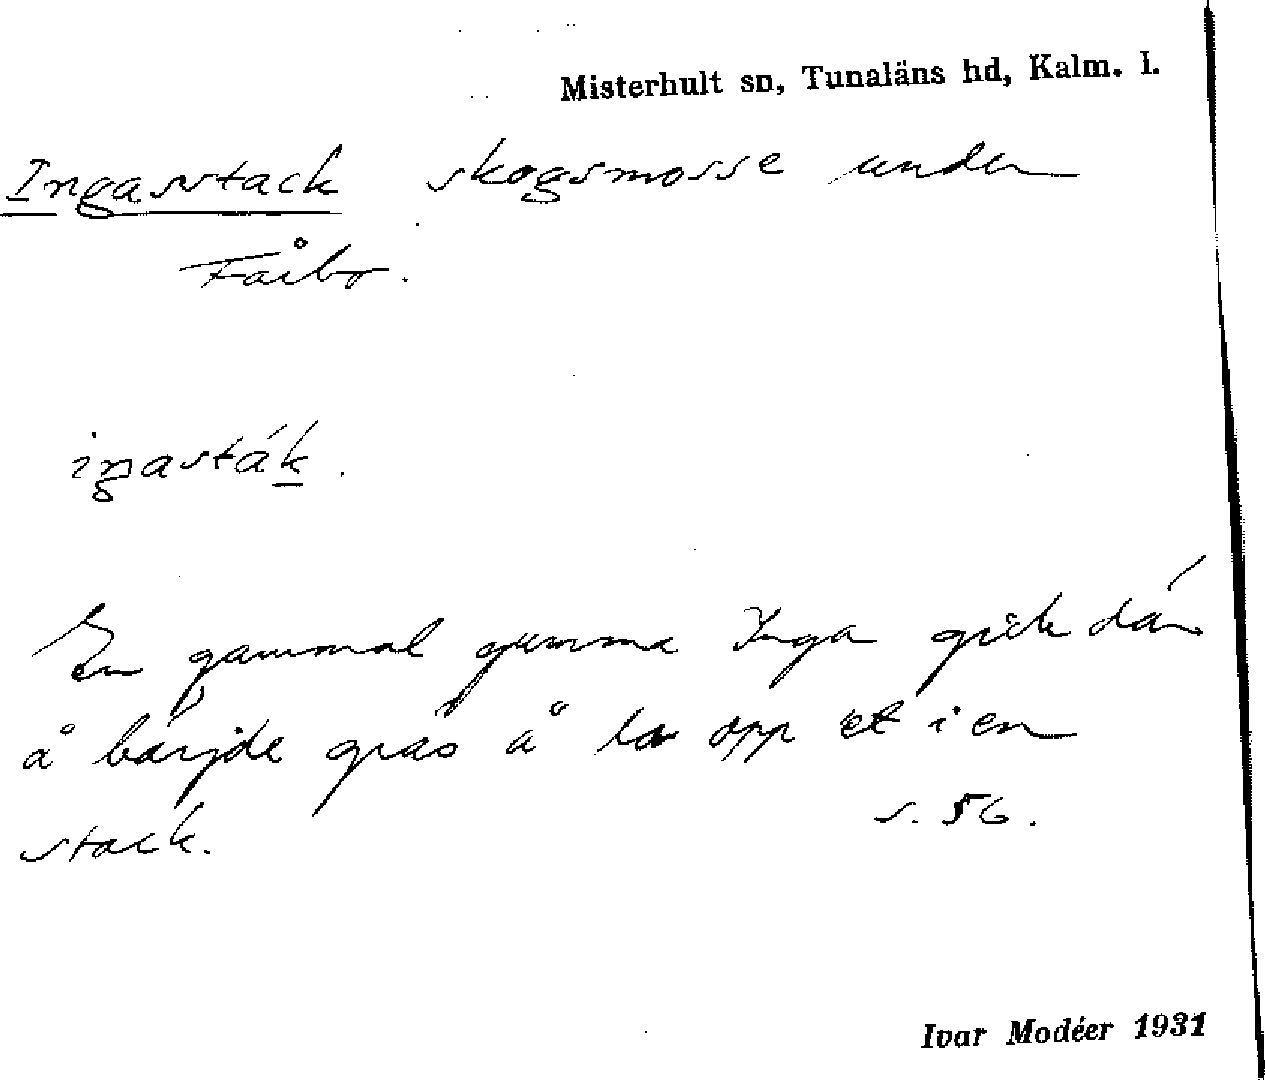 Misterhult sn, Tunaläns hd, Kalm. l.
Ingasstack skogsmosse under
Fårbo.
iŋasták.
En gammal gumma Inga gick där
å bärjde gräs å la opp et i en
stack.
s. 56.
Ivar Modéer 1931